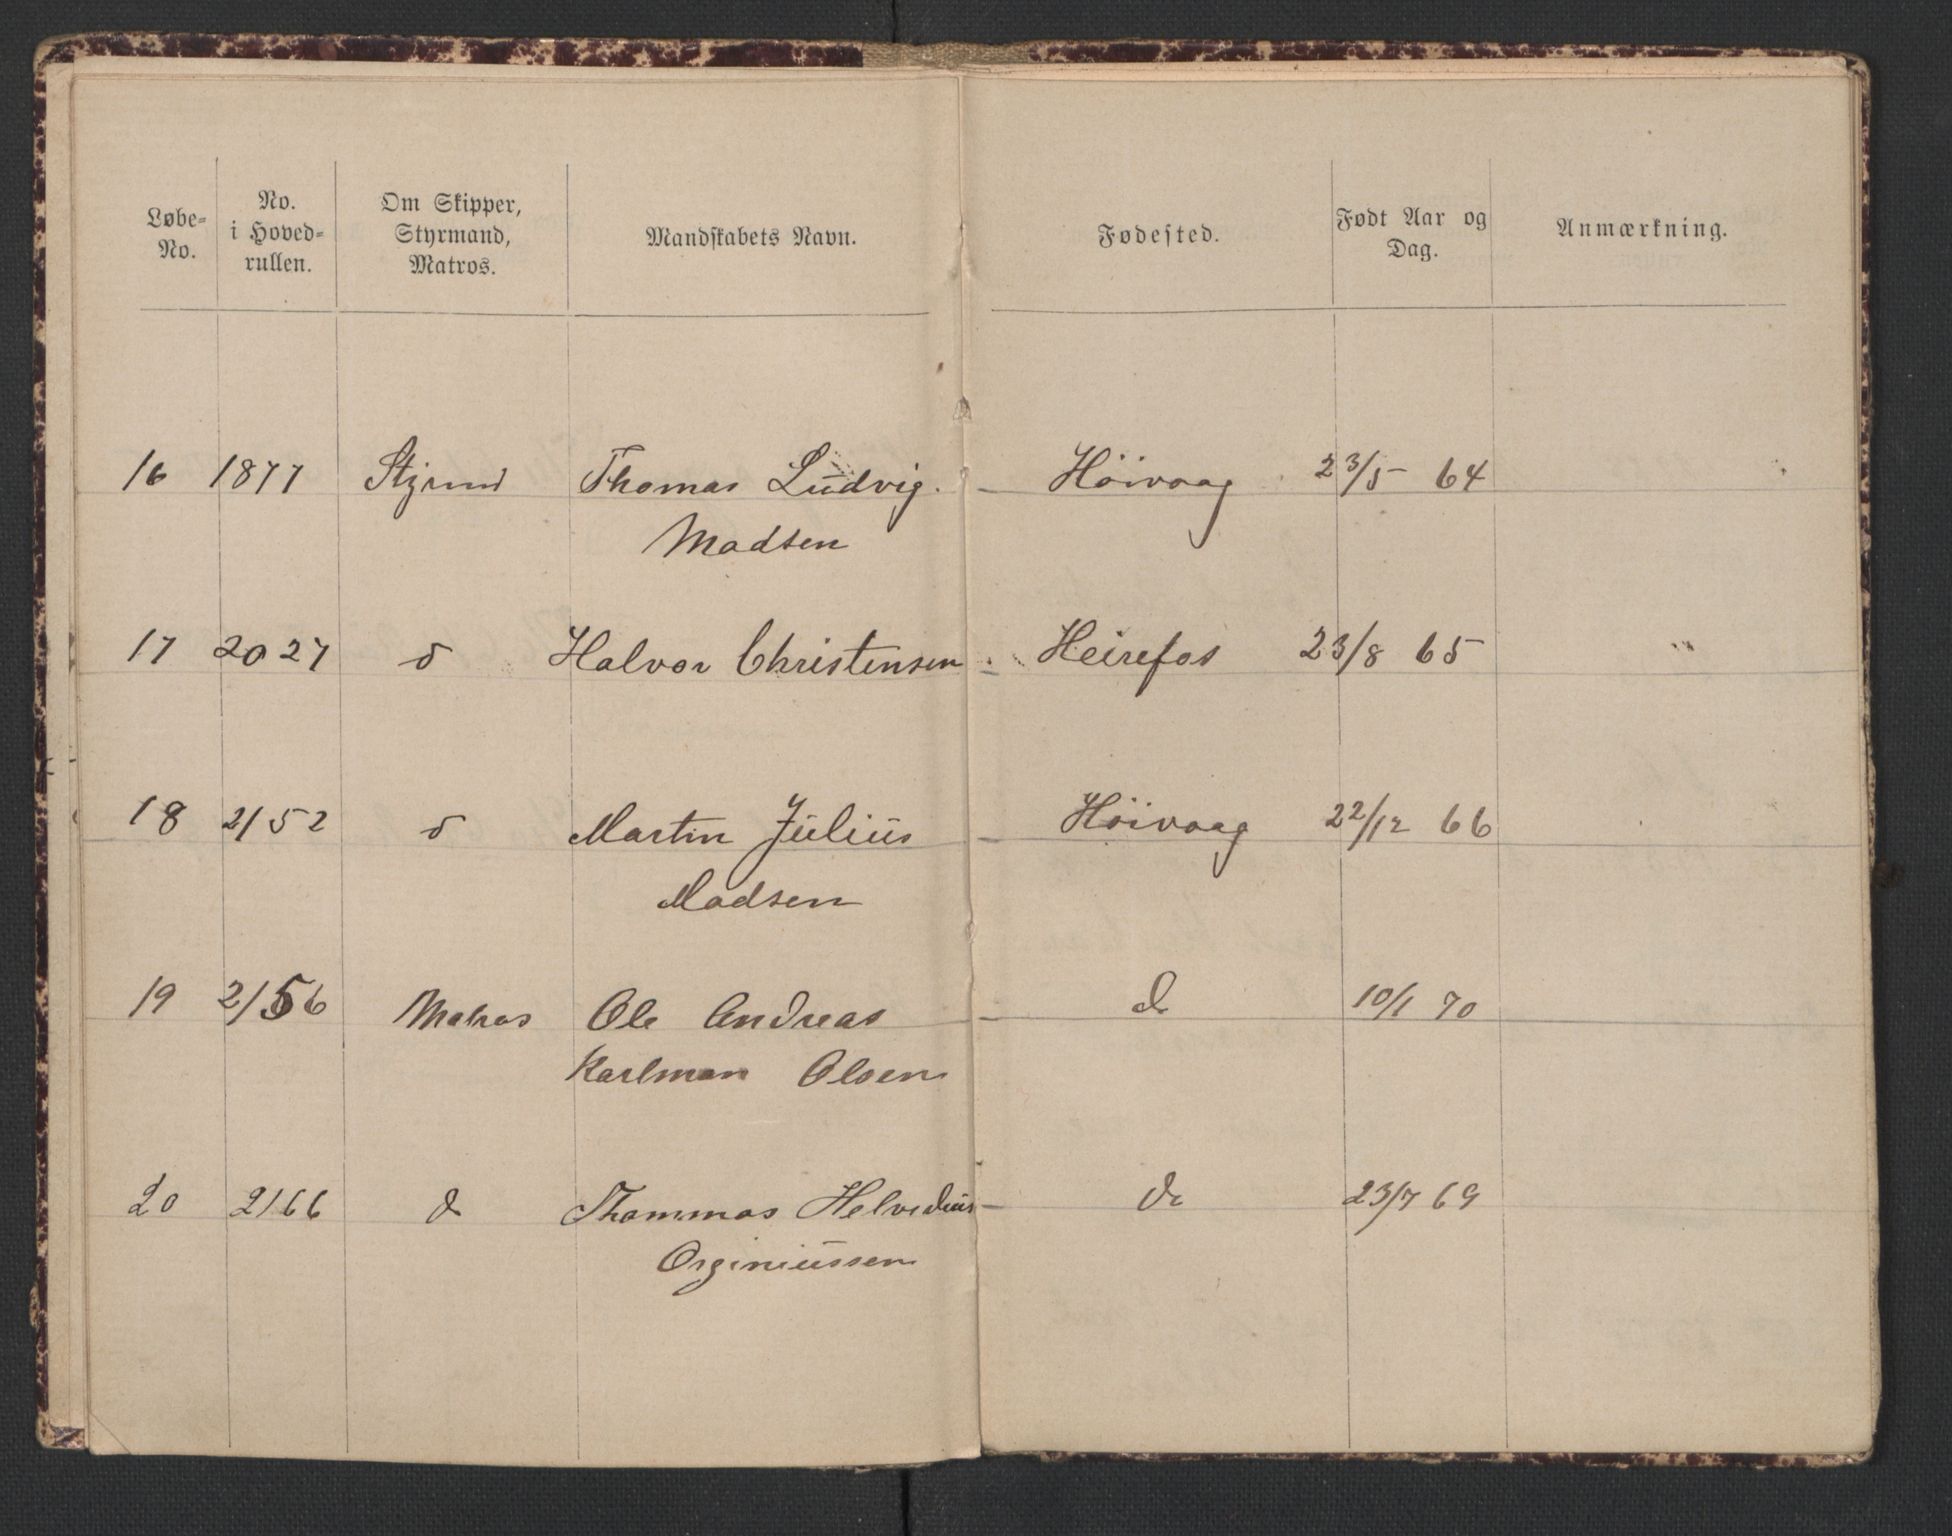 Løbe-No. No. i Hoved-rullen. Om Skipper, Styrmand, Matros. Mandskabets Navn. Fødested. Født Aar og Dag. Anmærkning.
16 1877 Styrmd Thomas Ludvig. Höivaag 23/5 64
Madsen
17 2027 d Halvor Christensen Heirefos 23/8 65
18 2152 d Martin Julius Höivaag 22/12 66
Madsen
19 2156 Matros Ole Andreas do 10/1 70
Karlman Olsen
20 2166 do Thommas Helvedius do 23/7 69
Orginiussen